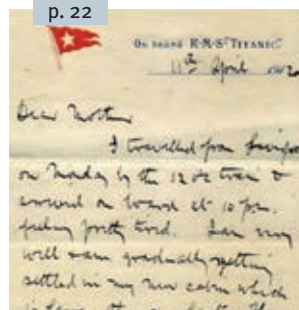 p. 22
On board R·M·S "TITANIC."
11th April 1912
Dear Mother
I travelled from Liverpool
on Monday by the 12 o'c train &
arrived on board at 10 pm.
feeling pretty tired. I am very
well & am gradually getting
settled in my new cabin which